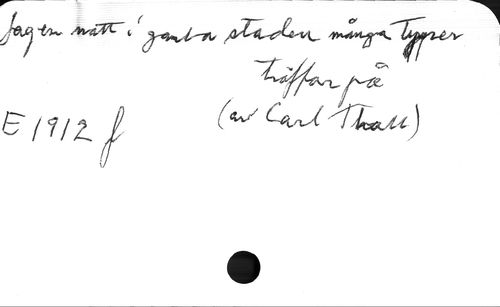 Jag en natt i gamla staden många Typer
träffar på
(av Carl Thall)
E 1912 f